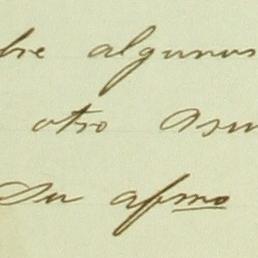 bre algunos
otro asu
Su afmo